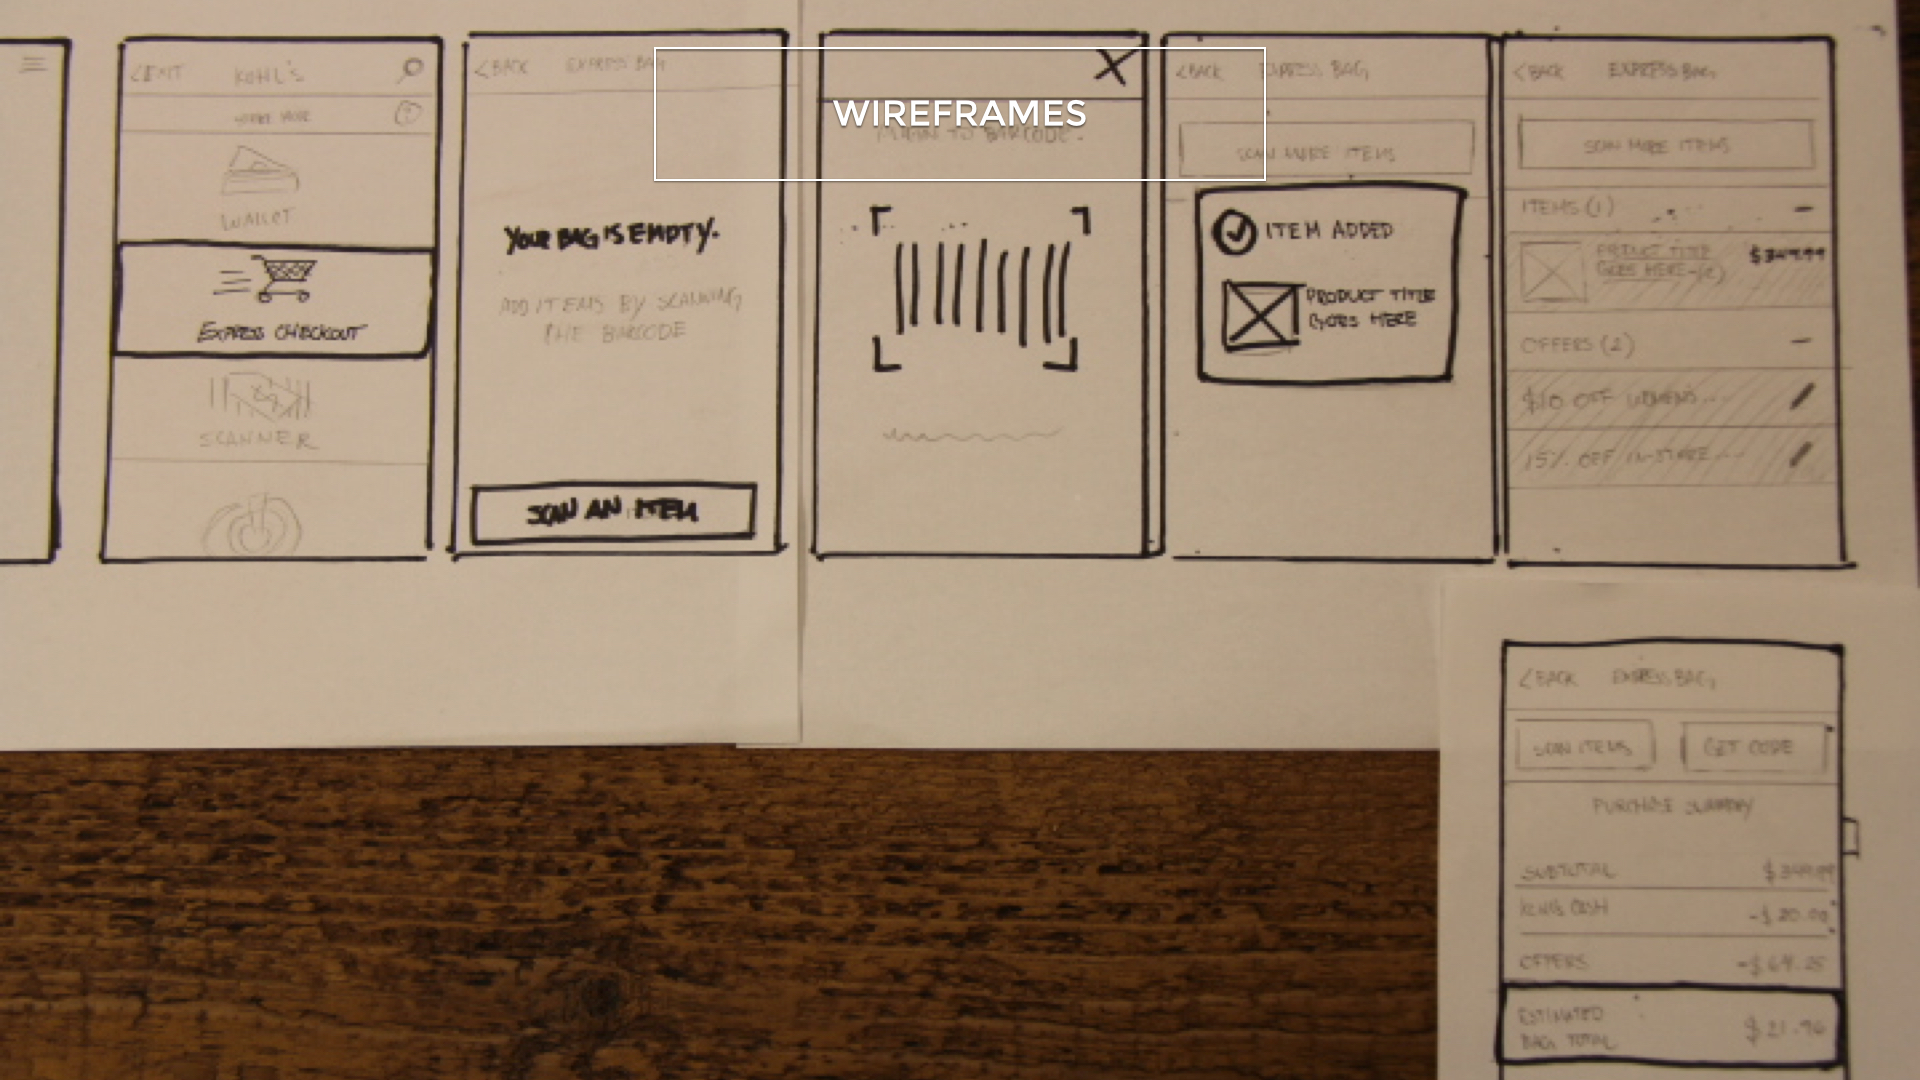 WIREFRAMES
<EXIT KOHL'S
WALLET
EXPRESS CHECKOUT
SCANNER
<BACK EXPRESS BAG
YOUR BAG IS EMPTY.
ADD ITEMS BY SCANNING
THE BARCODE
SCAN AN ITEM
X
TO BARCODE.
<BACK EXPRESS BAG
SCAN MORE ITEMS
ITEM ADDED
PRODUCT TITLE
GOES HERE
<BACK EXPRESS BAG
SCAN MORE ITEMS
ITEMS (1)
PRODUCT TITLE
GOES HERE
$349.99
OFFERS (2)
$10 OFF WOMENS...
15% OFF IN-STORE...
<BACK EXPRESS BAG
SCAN ITEMS GET CODE
PURCHASE SUMMARY
SUBTOTAL $349.99
CASH -$20.00
OFFERS
ESTIMATED
BAG TOTAL